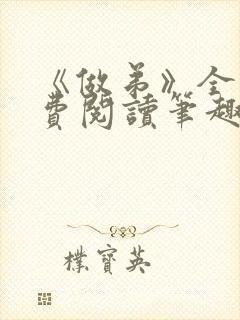 《做弟》全
費閱讀筆趣
樸寶英